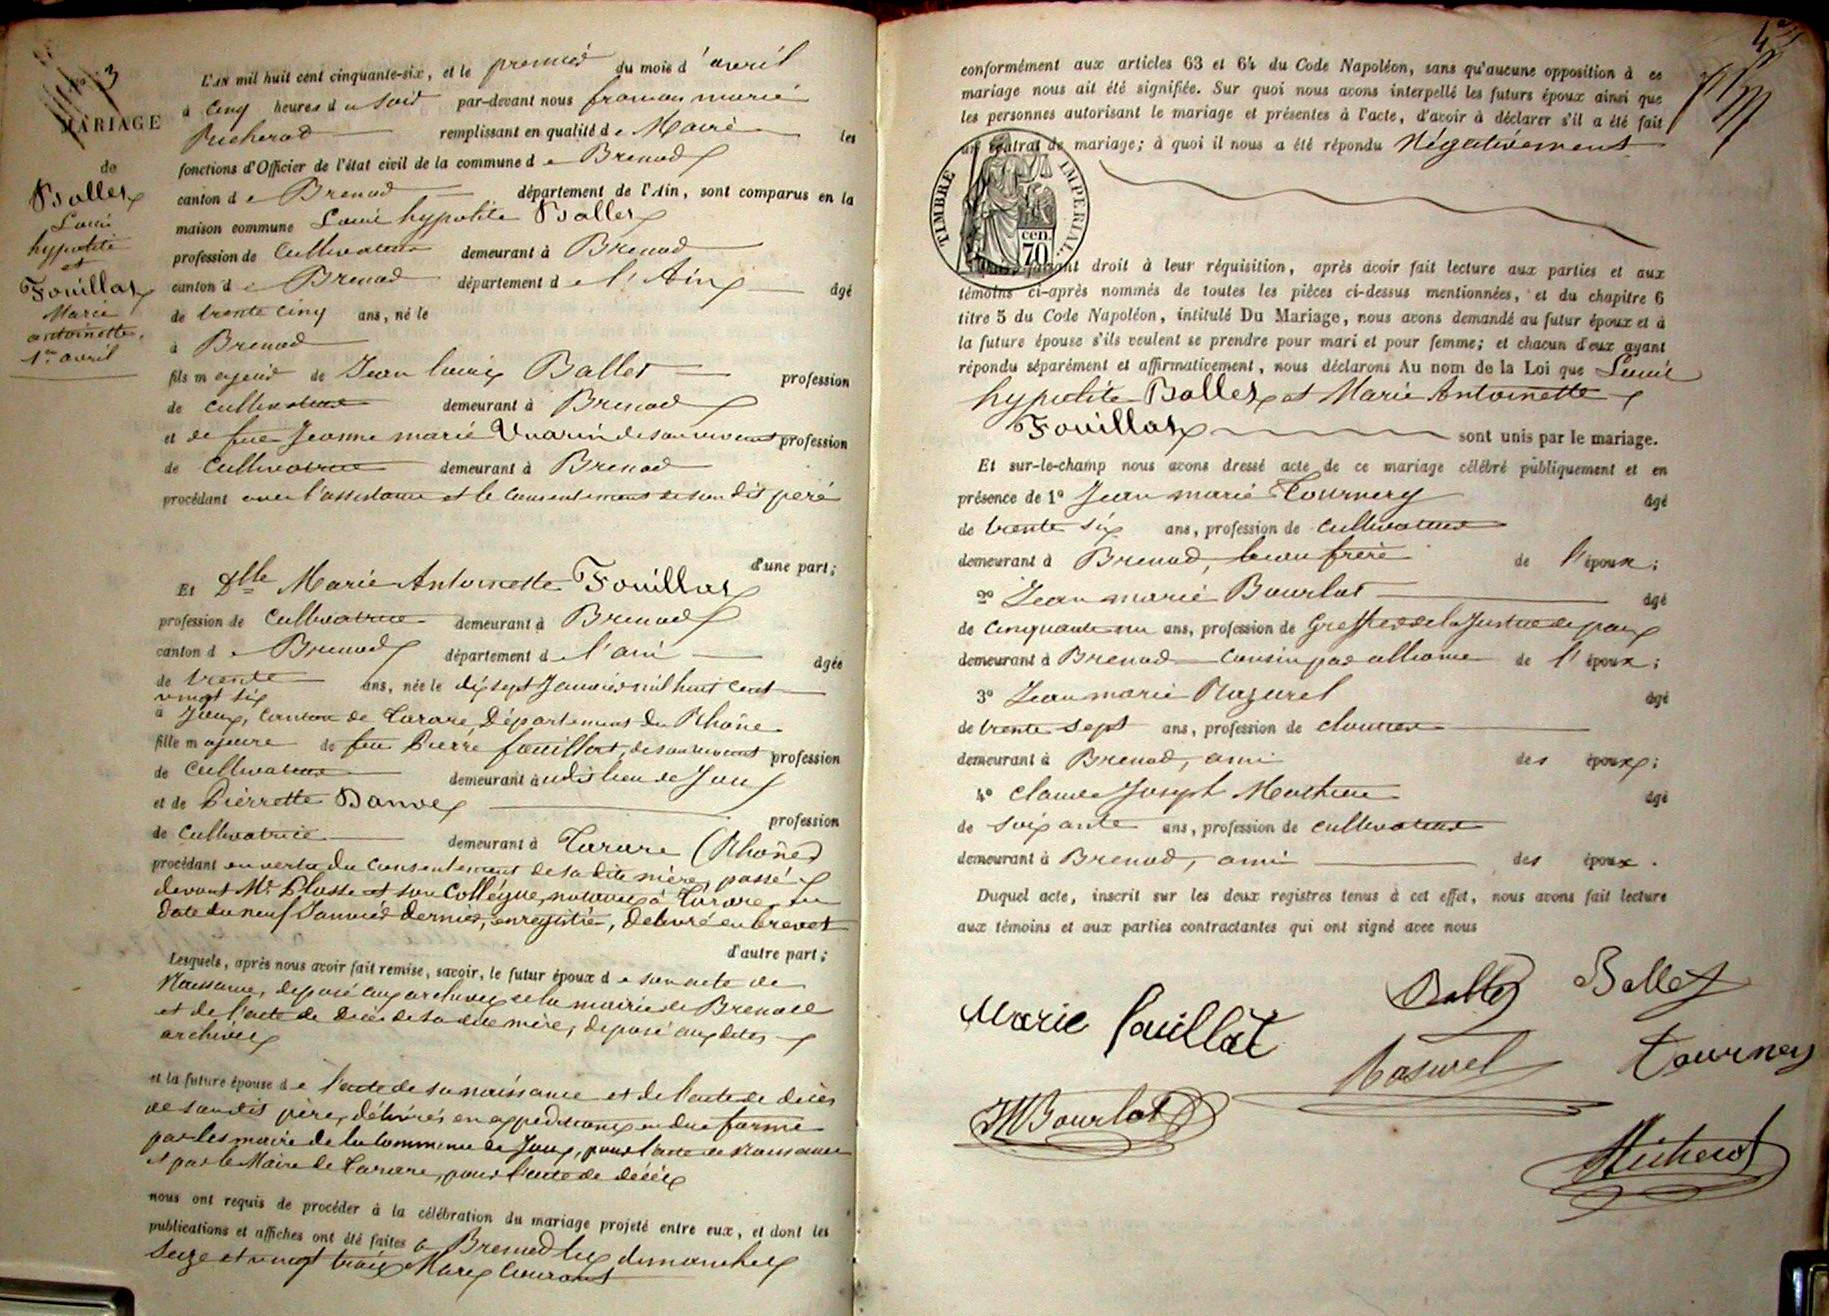 N° 3
MARIAGE
de
Ballet
Louis
hypolite
et
Fouillat
Marie
antoinette.
1er avril
L'AN mil huit cent cinquante-six, et le premier du mois d'avril
à cinq heures du soir par-devant nous françois marie
Richerod remplissant en qualité de Maire les
fonctions d'Officier de l'état civil de la commune de Brenod
canton de Brenod département de l'Ain, sont comparus en la
maison commune Louis hypolite Ballet
profession de cultivateur demeurant à Brenod
canton de Brenod département de l'Ain âgé
de trente cinq ans, né le
à Brenod
fils majeur de Jean louis Ballet profession
de cultivateur demeurant à Brenod
et de feue Jeanne marie Vuarin de son vivant profession
de cultivatrice demeurant à Brenod
procédant avec l'assistance et le consentement de son dit père
d'une part;
Et Dlle Marie Antoinette Fouillat
profession de cultivatrice demeurant à Brenod
canton de Brenod département de l'ain âgée
de trente ans, née le dix sept Janvier mil huit cent
vingt six
à Joux, Canton de Tarare, Département du Rhône
fille majeure de feu Pierre fouillat, de son vivant profession
de cultivateur demeurant audit lieu de Joux
et de Pierrette Danve profession
de cultivatrice demeurant à Tarare (Rhône)
procédant en vertu du consentement de sa dite mère, passé
devant Me Plasse et son Collègue, notaires à Tarare, en
date du neuf Janvier dernier, enregistré, délivré en brevet
d'autre part;
Lesquels, après nous avoir fait remise, savoir, le futur époux de son acte de
Naissance, déposé aux archives de la mairie de Brenod
et de l'acte de décès de sa dite mère, déposé aux dites
archives
et la future épouse de l'acte de sa naissance et de l'acte de décès
de son dit père, délivrés en expéditions en due forme
par les maire de la Commune de Joux, pour l'acte de Naissance
et par le Maire de Tarare, pour l'acte de décès
nous ont requis de procéder à la célébration du mariage projeté entre eux, et dont les
publications et affiches ont été faites à Brenod les dimanches
seize et vingt trois Mars Courant
conformément aux articles 63 et 64 du Code Napoléon, sans qu'aucune opposition à ce
mariage nous ait été signifiée. Sur quoi nous avons interpellé les futurs époux ainsi que
les personnes autorisant le mariage et présentes à l'acte, d'avoir à déclarer s'il a été fait
un contrat de mariage; à quoi il nous a été répondu Négativement
TIMBRE IMPERIAL
cen.
70
faisant droit à leur réquisition, après avoir fait lecture aux parties et aux
témoins ci-après nommés de toutes les pièces ci-dessus mentionnées, et du chapitre 6
titre 5 du Code Napoléon, intitulé Du Mariage, nous avons demandé au futur époux et à
la future épouse s'ils veulent se prendre pour mari et pour femme; et chacun d'eux ayant
répondu séparément et affirmativement, nous déclarons Au nom de la Loi que Louis
hypolite Ballet et Marie Antoinette
Fouillat sont unis par le mariage.
Et sur-le-champ nous avons dressé acte de ce mariage célébré publiquement et en
présence de 1° Jean marie Tournery âgé
de trente six ans, profession de cultivateur
demeurant à Brenod, beau frère de l'époux;
2° Jean marie Bourlot âgé
de cinquante un ans, profession de Greffier de la Justice de paix
demeurant à Brenod Cousin par alliance de l'époux;
3° Jean marie Mazurel âgé
de trente sept ans, profession de cloutier
demeurant à Brenod, ami des époux;
4° Claude Joseph Mathieu âgé
de soixante ans, profession de cultivateur
demeurant à Brenod, ami des époux.
Duquel acte, inscrit sur les deux registres tenus à cet effet, nous avons fait lecture
aux témoins et aux parties contractantes qui ont signé avec nous
Ballet Ballet
Marie fouillat
Masurel Tournery
JM Bourlot
Richerod